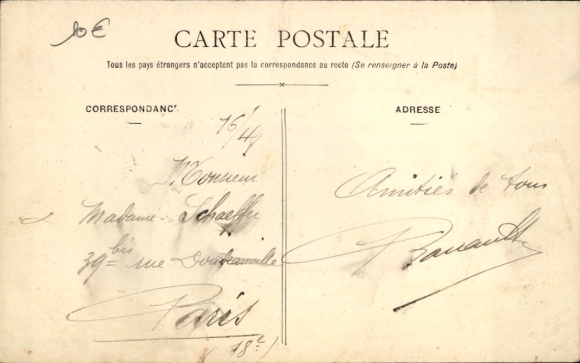 10€
CARTE POSTALE
Tous les pays étrangers n'acceptent pas la correspondance au recto (Se renseigner à la Poste)
CORRESPONDANCE
ADRESSE
Monsieur
Madame Schaeffer
39 bis rue
Paris
18e
Amitiés de tous